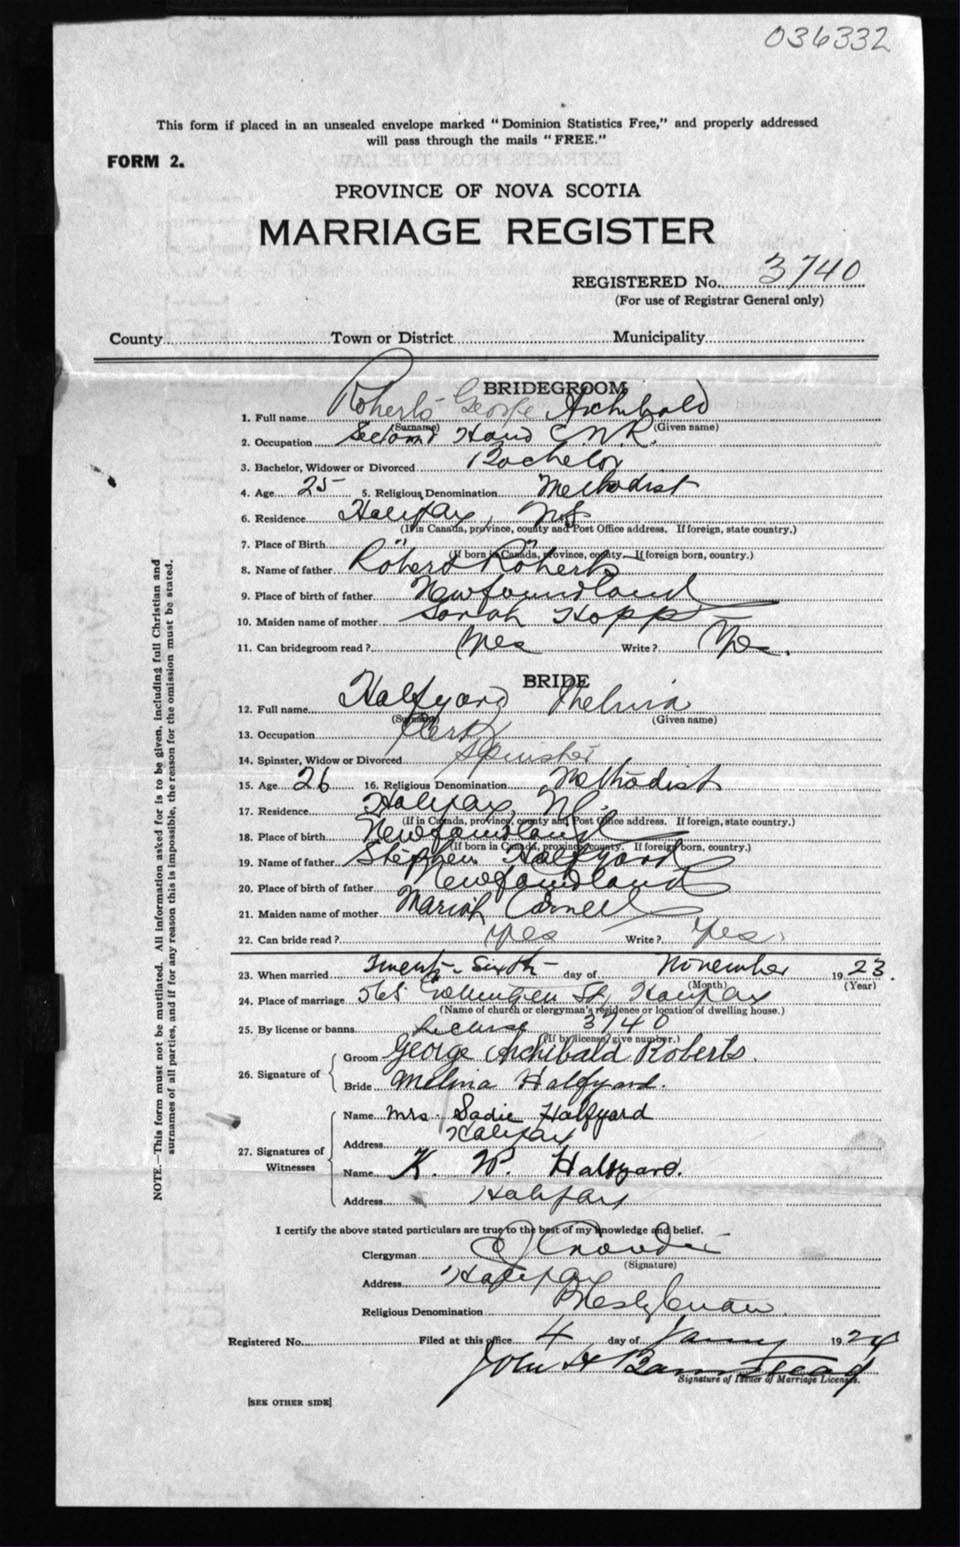 036332
This form if placed in an unsealed envelope marked "Dominion Statistics Free," and properly addressed
will pass through the mails "FREE."
FORM 2.
PROVINCE OF NOVA SCOTIA
MARRIAGE REGISTER
REGISTERED No. 3740
(For use of Registrar General only)
County Town or District Municipality
BRIDEGROOM
1. Full name Roberts George Archibald
(Surname) (Given name)
2. Occupation Second Hand CNR.
3. Bachelor, Widower or Divorced Bachelor
4. Age 25 5. Religious Denomination Methodist
6. Residence Halifax, N.S
(If in Canada, province, county and Post Office address. If foreign, state country.)
7. Place of Birth " "
(If born in Canada, province, county. If foreign born, country.)
8. Name of father Robert Roberts
9. Place of birth of father Newfoundland
10. Maiden name of mother Sarah Hopp
11. Can bridegroom read? Yes Write? Yes.
BRIDE
12. Full name Halfyard
(Surname) (Given name)
13. Occupation Clerk
14. Spinster, Widow or Divorced Spinster
15. Age 26 16. Religious Denomination Methodist
17. Residence Halifax, N.S.
(If in Canada, province, county and Post Office address. If foreign, state country.)
18. Place of birth Newfoundland
(If born in Canada, province, county. If foreign born, country.)
19. Name of father Stephen Halfyard
20. Place of birth of father Newfoundland
21. Maiden name of mother Mariah
22. Can bride read? Yes Write? Yes.
23. When married Twenty-Sixth day of November 1923.
(Month) (Year)
24. Place of marriage St, Halifax
(Name of church or clergyman's residence or location of dwelling house.)
25. By license or banns License 3740
(If by license, give number.)
26. Signature of Groom George Archibald Roberts.
Bride Melina Halfyard.
27. Signatures of Witnesses Name Mrs. Sadie Halfyard
Address Halifax
Name K. W. Halfyard.
Address Halifax
I certify the above stated particulars are true to the best of my knowledge and belief.
Clergyman
(Signature)
Address Halifax
Religious Denomination Presbyterian
Registered No. Filed at this office 4 day of 1924
John H Barnstead
Signature of Issuer of Marriage Licenses.
[SEE OTHER SIDE]
NOTE.—This form must not be mutilated. All information asked for is to be given, including full Christian and
surnames of all parties, and if for any reason this is impossible, the reason for the omission must be stated.